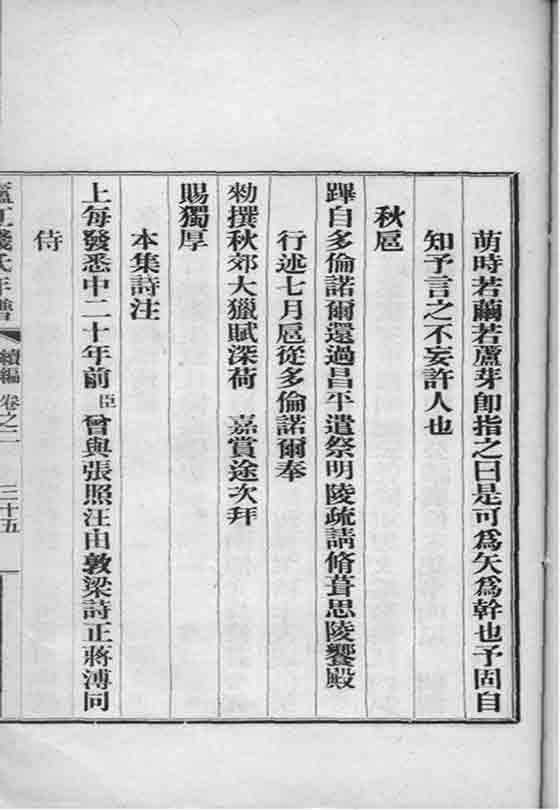 萌時若繭若蘆芽卽指之曰是可爲矢爲幹也予固自
知予言之不妄許人也
秋扈
蹕自多倫諾爾還過昌平遣祭明陵疏請脩葺思陵饗殿
行述七月扈從多倫諾爾奉
勑撰秋郊大獵賦深荷 嘉賞途次拜
賜獨厚
本集詩注
上每發悉中二十年前臣曾與張照汪由敦梁詩正蔣溥同
侍
廬江錢氏年譜 續編 卷之二 三十五